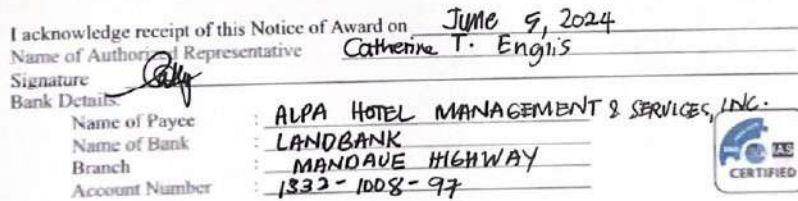 I acknowledge receipt of this Notice of Award on June 5, 2024
Name of Authorized Representative Catherine T. Englis
Signature
Bank Details:
Name of Payee : ALPA HOTEL MANAGEMENT & SERVICES, INC.
Name of Bank : LANDBANK
Branch : MANDAUE HIGHWAY
Account Number : 1332-1008-97
IAS
CERTIFIED